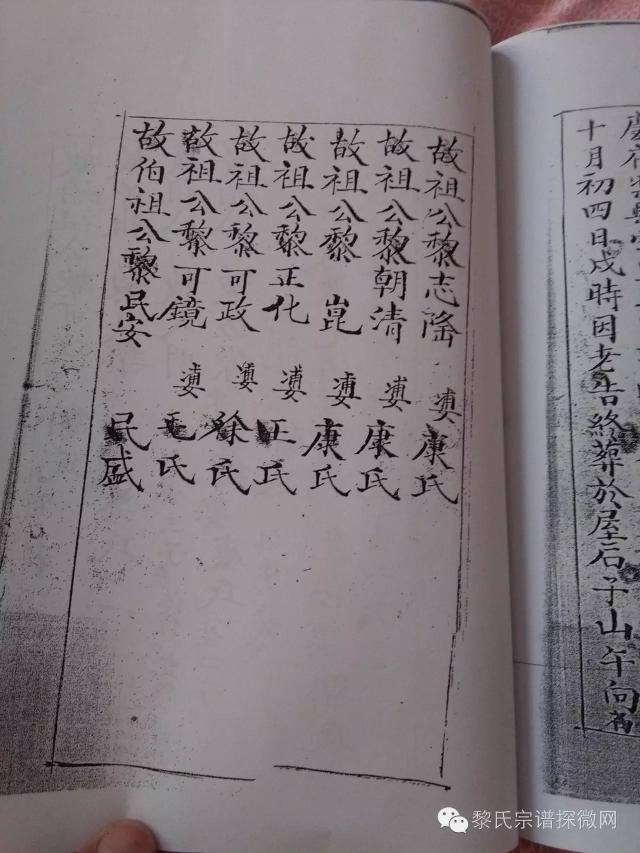 十月初四日戌時因老告終葬於屋后子山午向
故祖公黎志隆 婆康氏
故祖公黎朝清 婆康氏
故祖公黎崑 婆康氏
故祖公黎正化 婆氏
故祖公黎可政 婆徐氏
故祖公黎可鏡 婆毛氏
故伯祖公黎民安 民盛
黎氏宗谱探微网